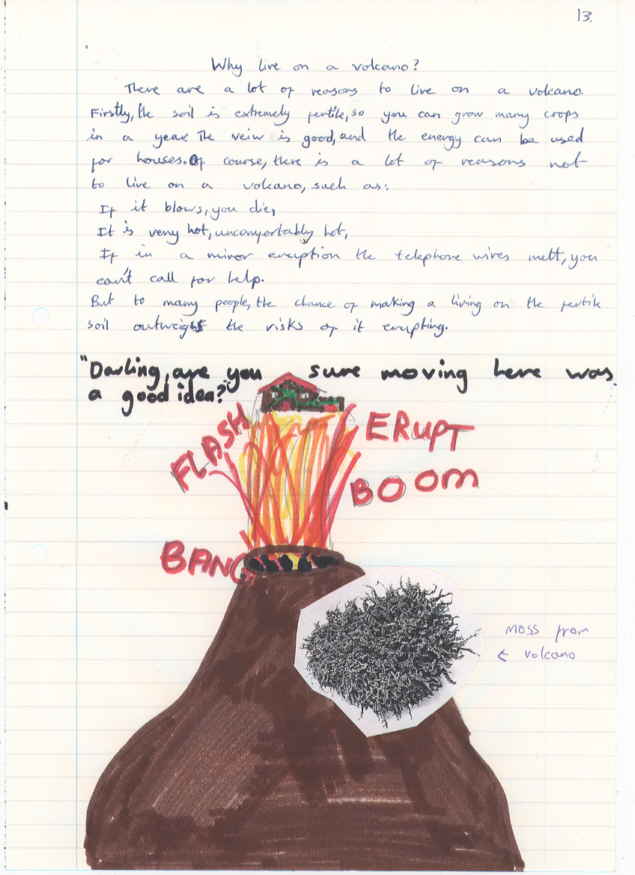 13.
Why live on a volcano?
There are a lot of reasons to live on a volcano
Firstly, the soil is extremely fertile, so you can grow many crops
in a year. The veiw is good, and the energy can be used
for houses. Of course, there is a lot of reasons not
to live on a volcano, such as:
If it blows, you die,
It is very hot, uncomfortably hot,
If in a minor eruption the telephone wires melt, you
can't call for help.
But to many people, the chance of making a living on the fertile
soil outweighs the risks of it erupting.
"Darling, are you sure moving here was
a good idea?"
FLASH
ERUPT
BOOM
BANG
MOSS from
← volcano